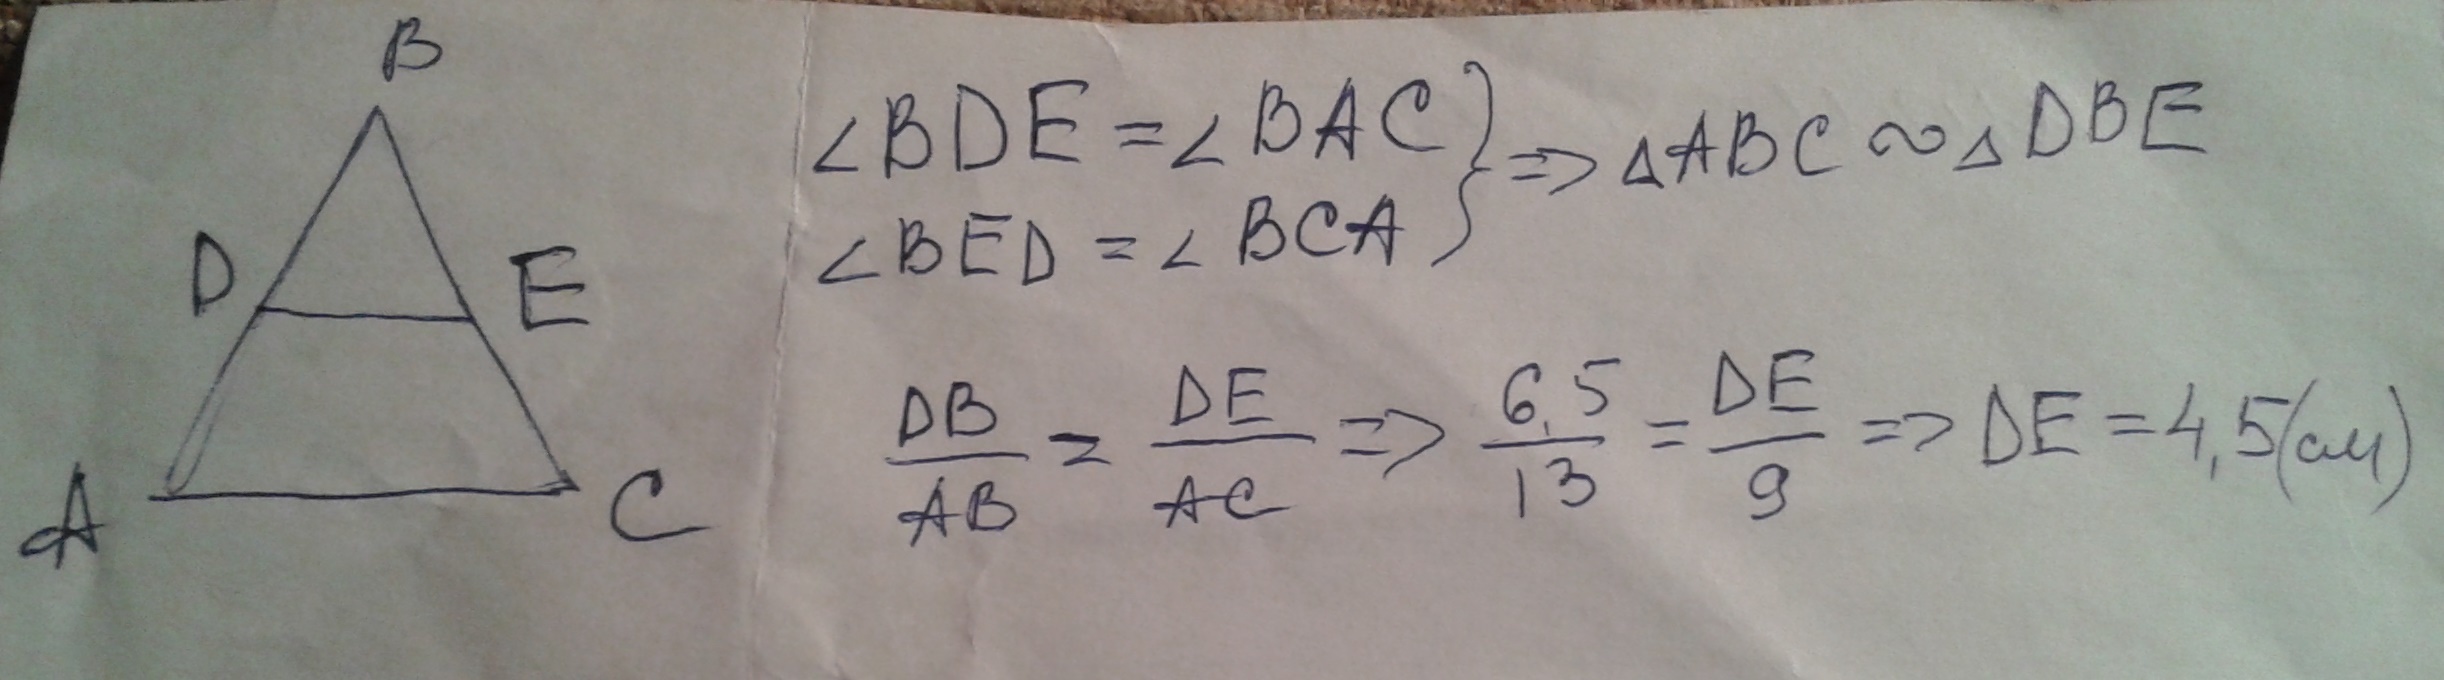 B
D
E
A
C
∠BDE = ∠BAC } => △ABC ∾ △DBE
∠BED = ∠BCA
DB/AB = DE/AC => 6,5/13 = DE/9 => DE = 4,5(см)